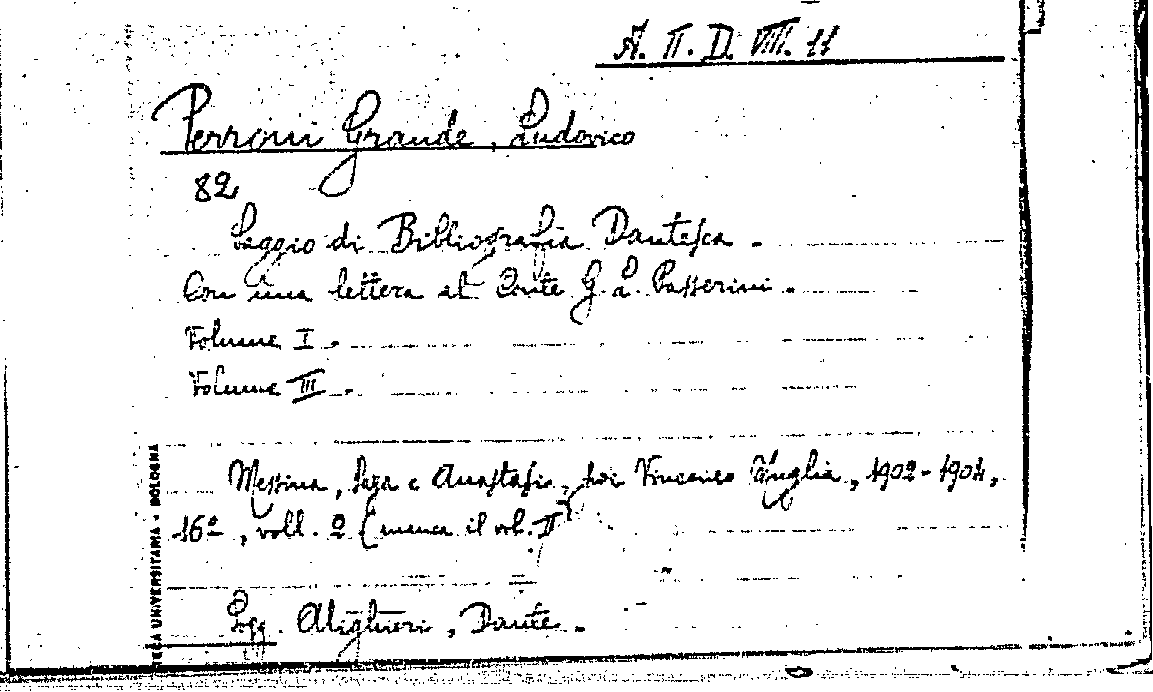 A. II. D. VIII. 11
Perroni Grande, Ludovico
82
Saggio di Bibliografia Dantesca.
Con una lettera al Conte G. L. Passerini.
Volume I.
Volume III.
Messina, Saya e Anastasi, poi Vincenzo Muglia, 1902-1904,
16º, voll. 2 (manca il vol. II)
Sogg. Alighieri, Dante.
TECA UNIVERSITARIA - BOLOGNA